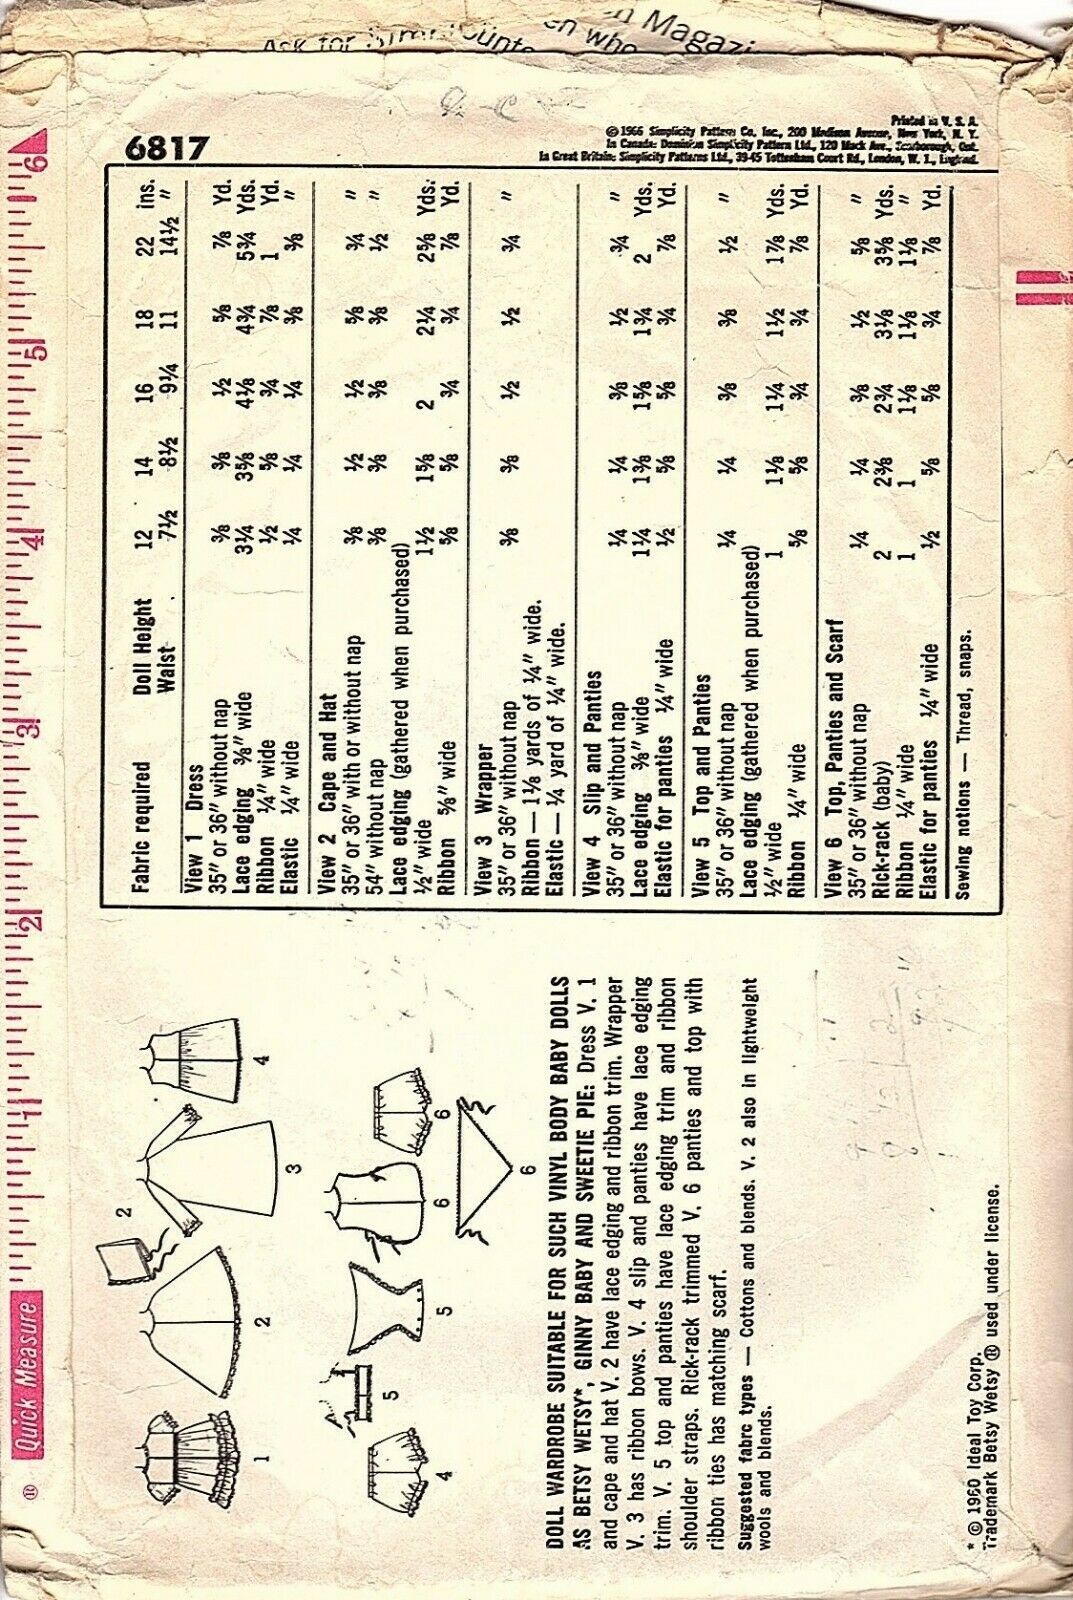 6817
©1966 Simplicity Pattern Co., Inc., 200 Madison Avenue, New York, N. Y.
Printed in U. S. A.
In Canada: Dominion Simplicity Pattern Ltd., 120 Mack Ave., Scarborough, Ont.
In Great Britain: Simplicity Patterns Ltd., 39-45 Tottenham Court Rd., London, W. 1., England.
Fabric required Doll Height 12 14 16 18 22 ins.
Waist 7½ 8½ 9¼ 11 14½ "
View 1 Dress
35" or 36" without nap ⅜ ⅜ ½ ⅝ ⅞ Yd.
Lace edging ⅜" wide 3¼ 3⅝ 4⅛ 4¾ 5¾ Yds.
Ribbon ¼" wide ½ ⅝ ¾ ⅞ 1 Yd.
Elastic ¼" wide ¼ ¼ ¼ ⅜ ⅜ "
View 2 Cape and Hat
35" or 36" with or without nap ⅜ ½ ½ ⅝ ¾ "
54" without nap ⅜ ⅜ ⅜ ⅜ ½ "
Lace edging (gathered when purchased)
½" wide 1½ 1⅝ 2 2¼ 2⅝ Yds.
Ribbon ⅝" wide ⅝ ⅝ ¾ ¾ ⅞ Yd.
View 3 Wrapper
35" or 36" without nap ⅜ ⅜ ½ ½ ¾ "
Ribbon — 1⅛ yards of ¼" wide.
Elastic — ¼ yard of ¼" wide.
View 4 Slip and Panties
35" or 36" without nap ¼ ¼ ⅜ ½ ¾ "
Lace edging ⅜" wide 1¼ 1⅜ 1⅝ 1¾ 2 Yds.
Elastic for panties ¼" wide ½ ⅝ ⅝ ¾ ⅞ Yd.
View 5 Top and Panties
35" or 36" without nap ¼ ¼ ⅜ ⅜ ½ "
Lace edging (gathered when purchased)
½" wide 1 1⅛ 1¼ 1½ 1⅞ Yds.
Ribbon ¼" wide ⅝ ⅝ ¾ ¾ ⅞ Yd.
View 6 Top, Panties and Scarf
35" or 36" without nap ¼ ¼ ⅜ ½ ⅝ "
Rick-rack (baby) 2 2⅜ 2¾ 3⅛ 3⅝ Yds.
Ribbon ¼" wide 1 1 1⅛ 1⅛ 1⅛ "
Elastic for panties ¼" wide ½ ⅝ ⅝ ¾ ⅞ Yd.
Sewing notions — Thread, snaps.
1
2
2
3
4
4
5
5
6
6
6
DOLL WARDROBE SUITABLE FOR SUCH VINYL BODY BABY DOLLS
AS BETSY WETSY*, GINNY BABY AND SWEETIE PIE: Dress V. 1
and cape and hat V. 2 have lace edging and ribbon trim. Wrapper
V. 3 has ribbon bows. V. 4 slip and panties have lace edging
trim. V. 5 top and panties have lace edging trim and ribbon
shoulder straps. Rick-rack trimmed V. 6 panties and top with
ribbon ties has matching scarf.
Suggested fabric types — Cottons and blends. V. 2 also in lightweight
wools and blends.
* © 1960 Ideal Toy Corp.
Trademark Betsy Wetsy ® used under license.
® Quick Measure
1
2
3
4
5
6
Ask for
en who
Magazi